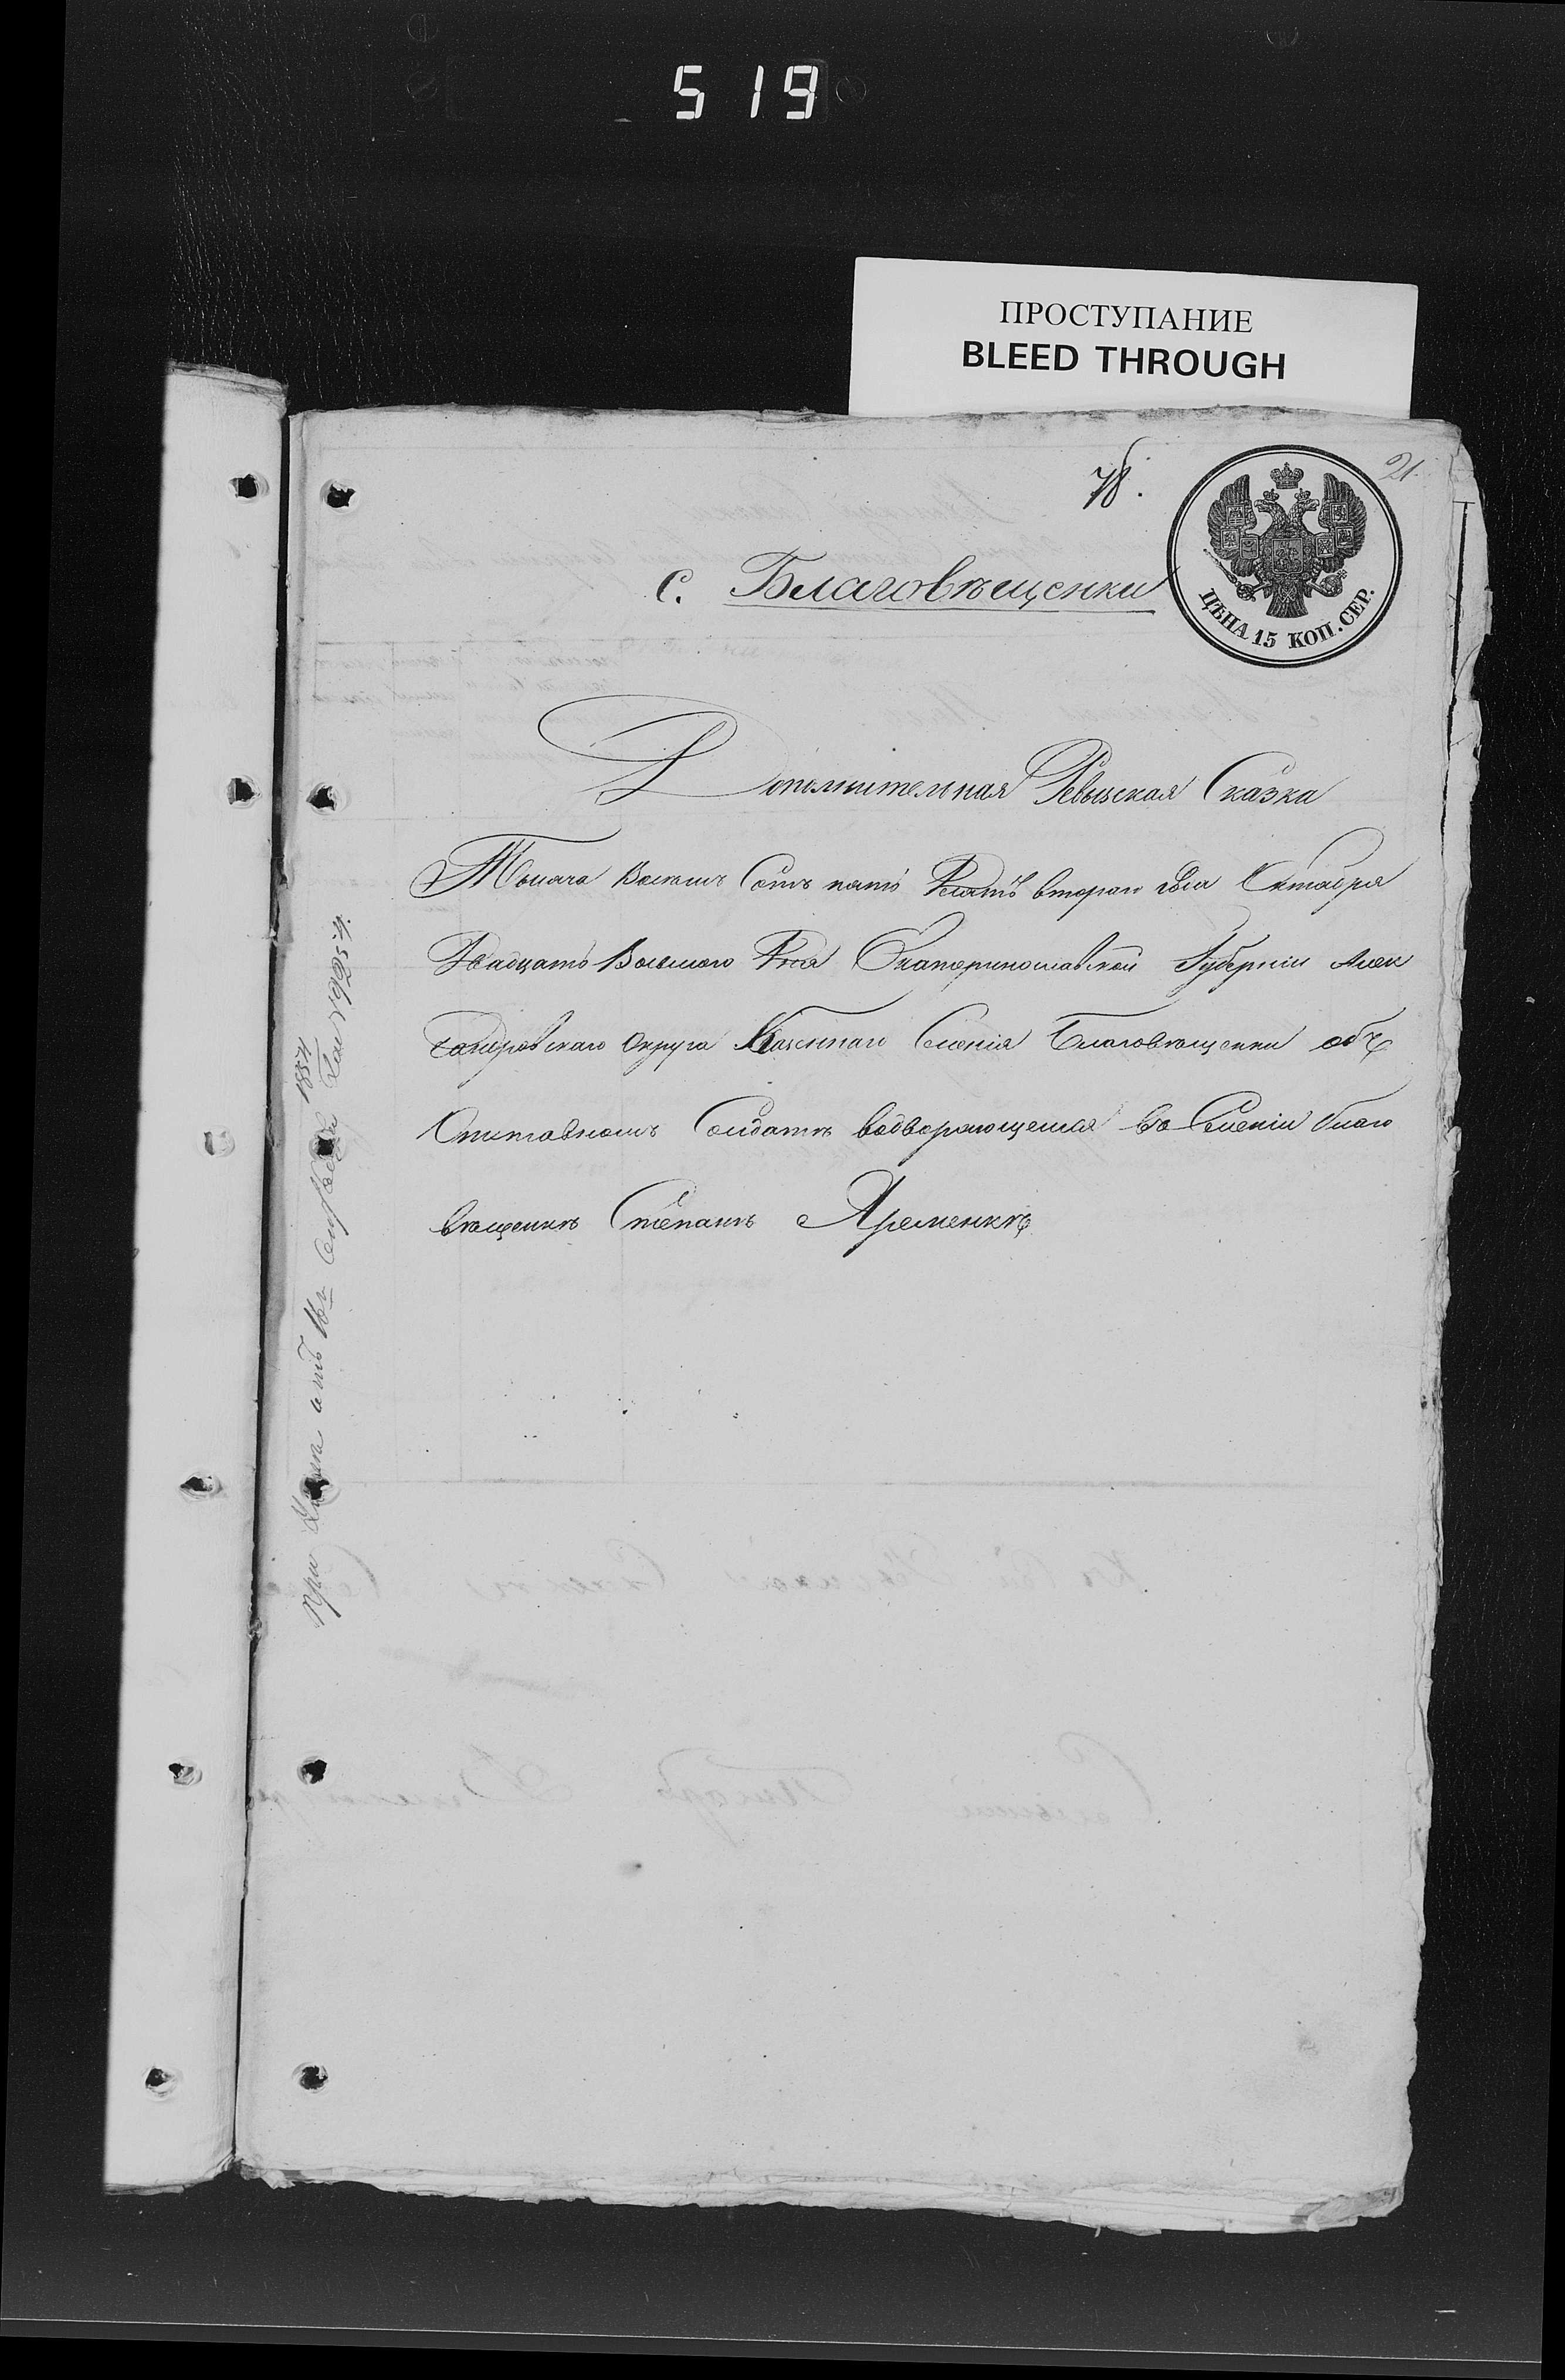 519
ПРОСТУПАНИЕ
BLEED THROUGH
78.
21.
с. Благовѣщенки
ЦѢНА 15 КОП. СЕР.
Дополнительная Ревизская Сказка
Тысяча Восемь Сотъ пять Десятъ второго года Октября
Двадцать Восьмого Дня Екатеринославской Губерніи Алек
сандровскаго Округа Казеннаго Селенія Благовѣщенки объ
Отставномъ Солдатѣ водворяющемся въ Селеніи благо
вѣщенкѣ Степанѣ Яременкѣ
При отъ 16 1854 19254.